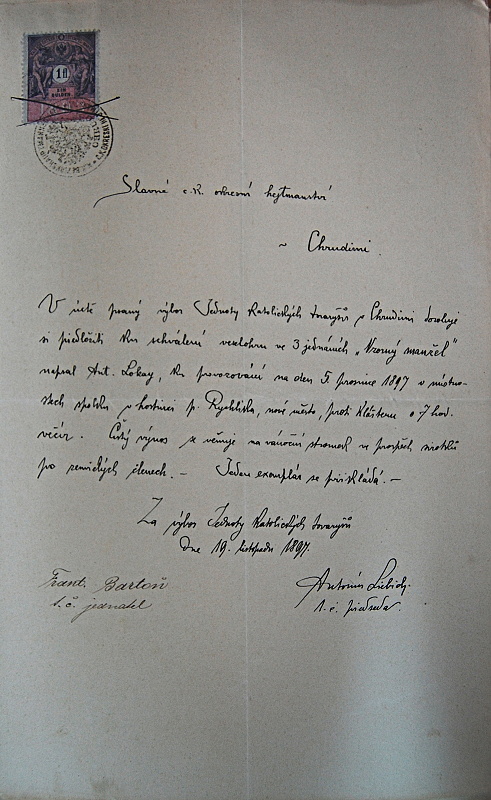 1 fl
EIN
GULDEN
Slavné c. k. okresní hejtmanství
v Chrudimi.
V úctě psaný výbor Jednoty Katolických tovaryšů v Chrudimi dovoluje
si předložiti ku schválení veselohru ve 3 jednáních „Vzorný manžel“
napsal Ant. Lokay, ku provozování na den 5. prosince 1897 v místno-
stech spolku v hostinci p. Rychlíka, nové město, proti klášteru o 7 hod.
večer. Čistý výnos se věnuje na vánoční stromek ve prospěch sirotků
po zemřelých členech. – Jeden exemplár se přikládá. –
Za výbor Jednoty Katolických tovaryšů
Dne 19. listopadu 1897.
Frant. Bartoň
t. č. jednatel
Antonín
t. č. předseda.